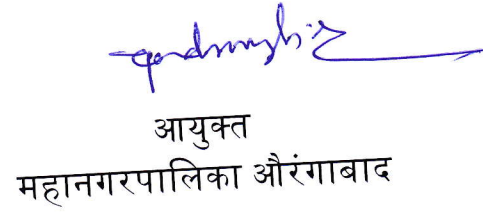 आयुक्त
महानगरपालिका औरंगाबाद